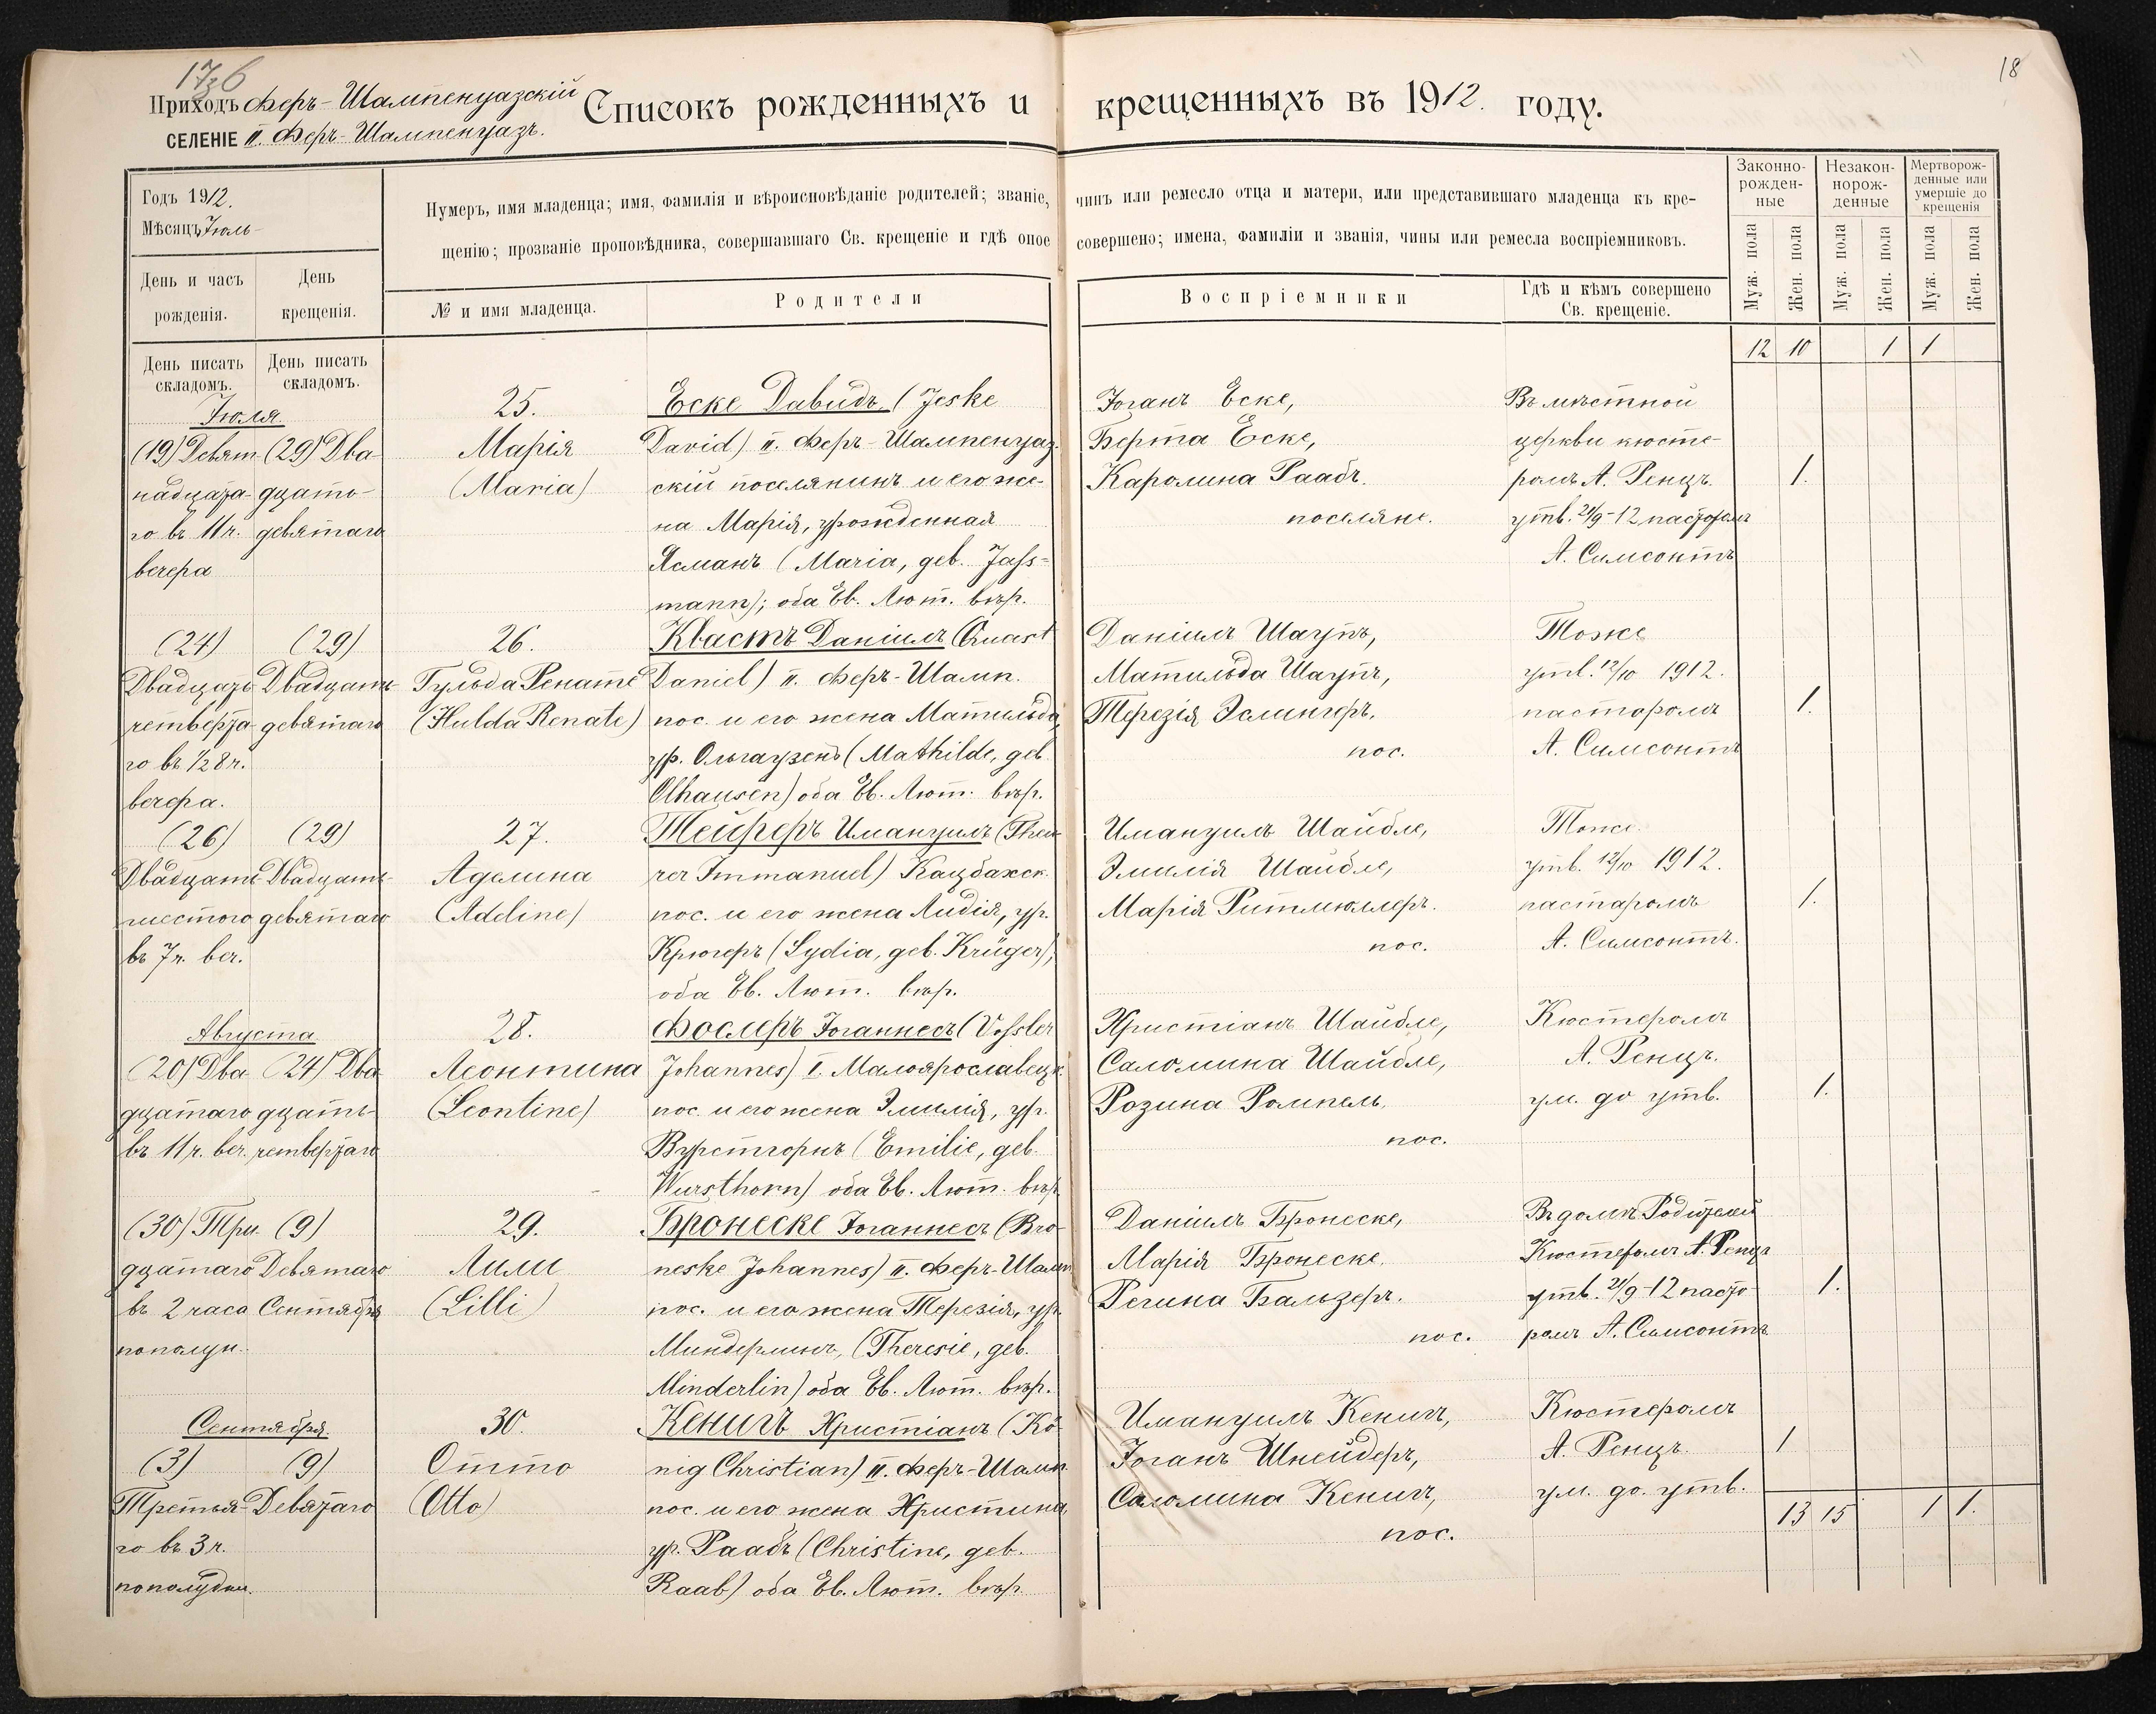 17 об
18
Приходъ Феръ-Шампенуазскій
СЕЛЕНІЕ II. Феръ-Шампенуазъ.
Списокъ рожденныхъ и крещенныхъ въ 1912. году.
Годъ 1912.
Мѣсяцъ Іюль
День и часъ рожденія.
День крещенія.
Нумеръ, имя младенца; имя, фамилія и вѣроисновѣданіе родителей; званіе, чинъ или ремесло отца и матери, или представившаго младенца къ кре-
щенію; прозваніе проповѣдника, совершавшаго Св. крещеніе и гдѣ оное совершено; имена, фамиліи и званія, чины или ремесла воспріемниковъ.
№ и имя младенца.
Родители
Воспріемники
Гдѣ и кѣмъ совершено
Св. крещеніе.
Законно-
рожден-
ные
Незакон-
норож-
денные
Мертворож-
денные или
умершіе до
крещенія
Муж. пола
Жен. пола
Муж. пола
Жен. пола
Муж. пола
Жен. пола
День писать
складомъ.
День писать
складомъ.
12 10 1 1
Іюля
(19) Девят-
надцата-
го въ 11 ч.
вечера
(29) Два-
дцато-
девятаго
25.
Марія
(Maria)
Еске Давидъ (Jeske
David) II. Феръ-Шампенуаз-
скій поселянинъ и его же-
на Марія, урожденная
Ясманъ (Maria, geb. Jass=
mann); оба Ев. Лют. вѣр.
Іоганъ Еске,
Берта Еске,
Каролина Раабъ.
поселяне.
Въ мѣстной
церкви кюсте-
ромъ А. Ренцъ.
утв. 21/9-12 пасторомъ
А. Симсонтъ
1.
(24)
Двадцать
четверта-
го въ 1/2 8 ч.
вечера.
(29)
Двадцать
девятаго
26.
Гульда Ренате
(Hulda Renate)
Квастъ Даніилъ (Quast
Daniel) II. Феръ-Шамп.
пос. и его жена Матильда,
ур. Ольгаузенъ (Mathilde, geb.
Olhausen) оба Ев. Лют. вѣр.
Даніилъ Шаупъ,
Матильда Шаупъ,
Терезія Эслингеръ,
пос.
Тоже
утв. 12/10 1912.
пасторомъ
А. Симсонтъ
1.
(26)
Двадцать
шестого
въ 7 ч. веч.
(29)
Двадцать-
девятаго
27.
Аделина
(Adeline)
Тейреръ Имануилъ (Theu-
rer Immanuel) Кацбахск.
пос. и его жена Лидія, ур.
Крюгеръ (Lydia, geb. Krüger);
оба Ев. Лют. вѣр.
Имануилъ Шайбле,
Эмилія Шайбле,
Марія Ритмюллеръ.
пос.
Тоже.
утв. 12/10 1912.
пастаромъ
А. Симсонтъ.
1.
Августа
(20) Два-
дцатаго
въ 11 ч. веч.
(24) Два-
дцать-
четвертаго
28.
Леонтина
(Leontine)
Фослеръ Іоганнесъ (Vossler
Johannes) I. Малоярославецк.
пос. и его жена Эмилія, ур.
Вурстгорнъ (Emilie, geb.
Wursthorn) оба Ев. Лют. вѣр.
Христіанъ Шайбле,
Саломина Шайбле,
Розина Ромпель.
пос.
Кюстеромъ
А. Ренцъ.
ум. до утв.
1.
(30) Три-
дцатаго
въ 2 часа
пополун.
(9)
Девятаго
Сентября
29.
Лили
(Lilli)
Бронеске Іоганнесъ (Bro-
neske Johannes) II. Феръ-Шамп.
пос. и его жена Терезія, ур.
Миндерлинъ, (Theresie, geb.
Minderlin) оба Ев. Лют. вѣр.
Даніилъ Бронеске,
Марія Бронеске,
Регина Бальзеръ.
пос.
Въ домѣ Родителей
Кюстеромъ А. Ренцъ
утв. 21/9-12 пасто-
ромъ А. Симсонтъ
1.
Сентября.
(3)
Третья-
го въ 3 ч.
пополудни.
(9)
Девятаго
30.
Отто
(Otto)
Кенигъ Христіанъ (Kö-
nig Christian) II. Феръ-Шамп.
пос. и его жена Христина,
ур. Раабъ (Christine, geb.
Raab) оба Ев. Лют. вѣр.
Имануилъ Кенигъ,
Іоганъ Шнейдеръ,
Саломина Кенигъ,
пос.
Кюстеромъ
А. Ренцъ.
ум. до утв.
1
13 15 1 1.